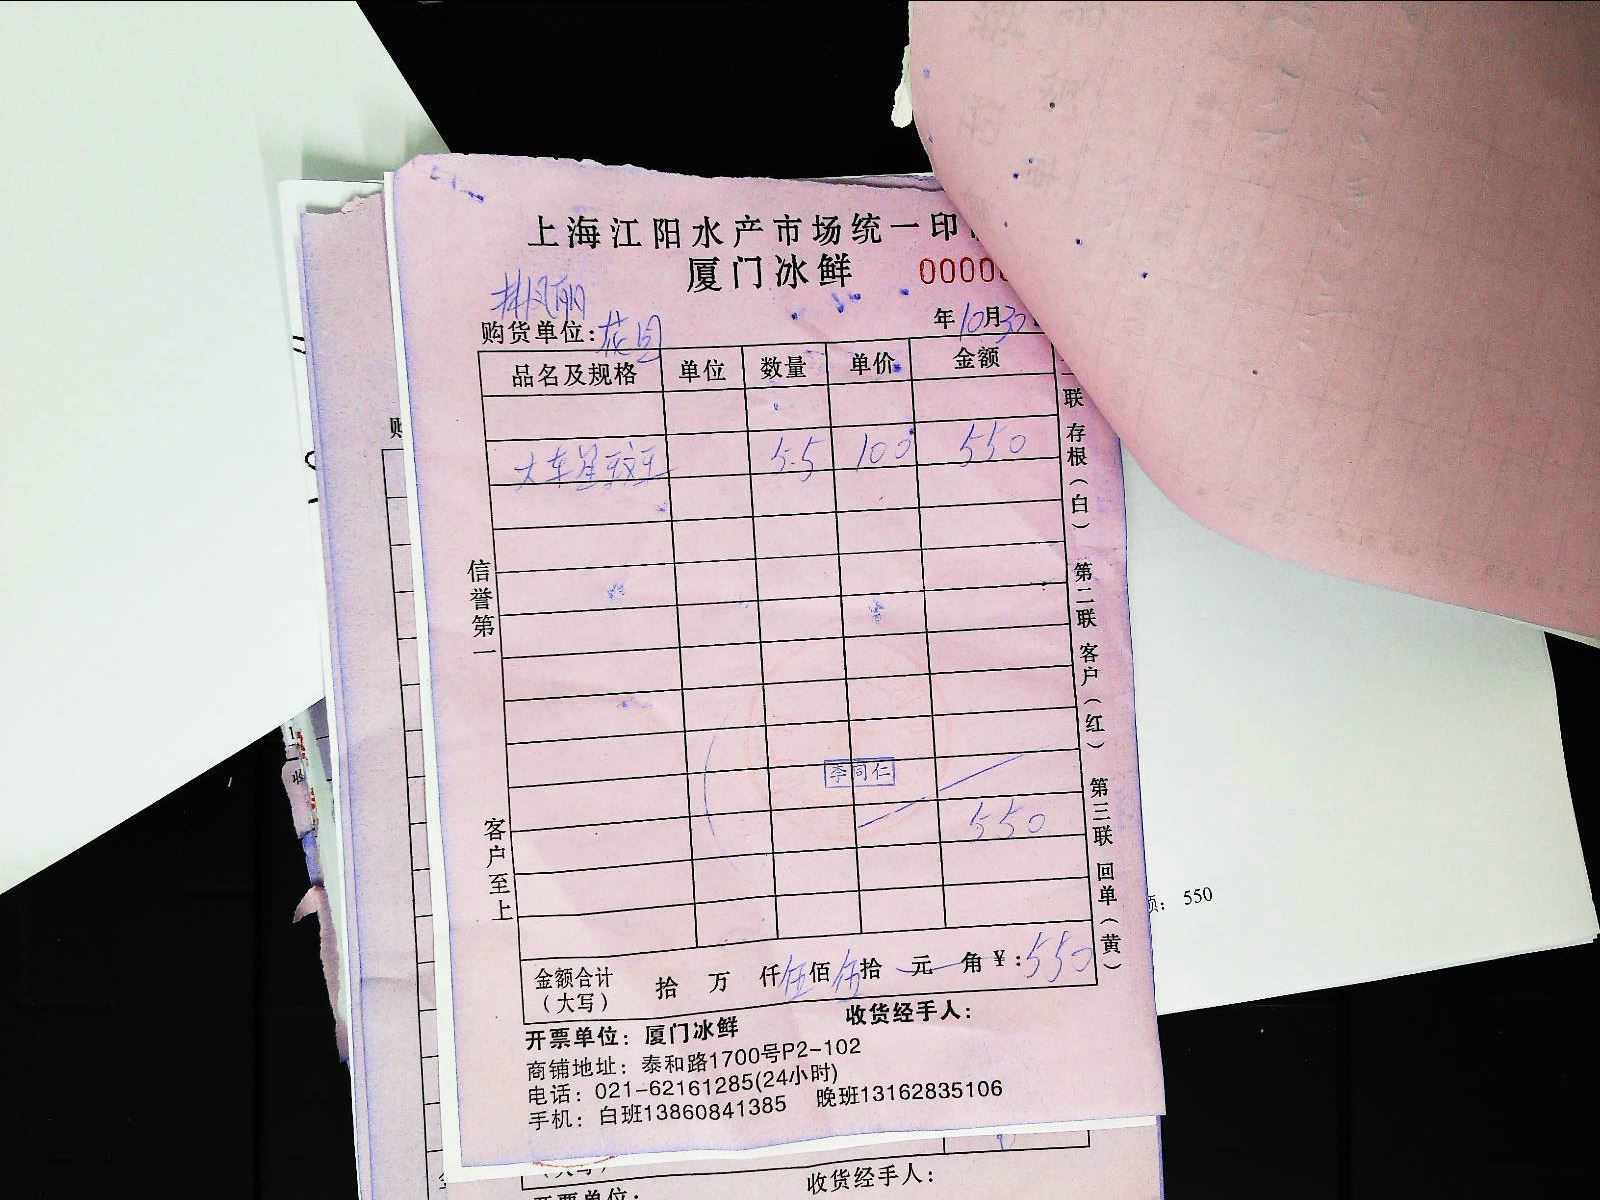 上海江阳水产市场统一印
厦门冰鲜
0000
购货单位：花园
年10月30
品名及规格 单位 数量 单价 金额
5.5 100 550
550
李同仁
信誉第一
客户至上
联存根（白） 第二联客户（红） 第三联回单（黄）
金额合计（大写） 拾 万 仟伍佰伍拾 元 角 ¥：550
开票单位：厦门冰鲜 收货经手人：
商铺地址：泰和路1700号P2-102
电话：021-62161285(24小时)
手机：白班13860841385 晚班13162835106
550
（大写）
开票单位： 收货经手人：